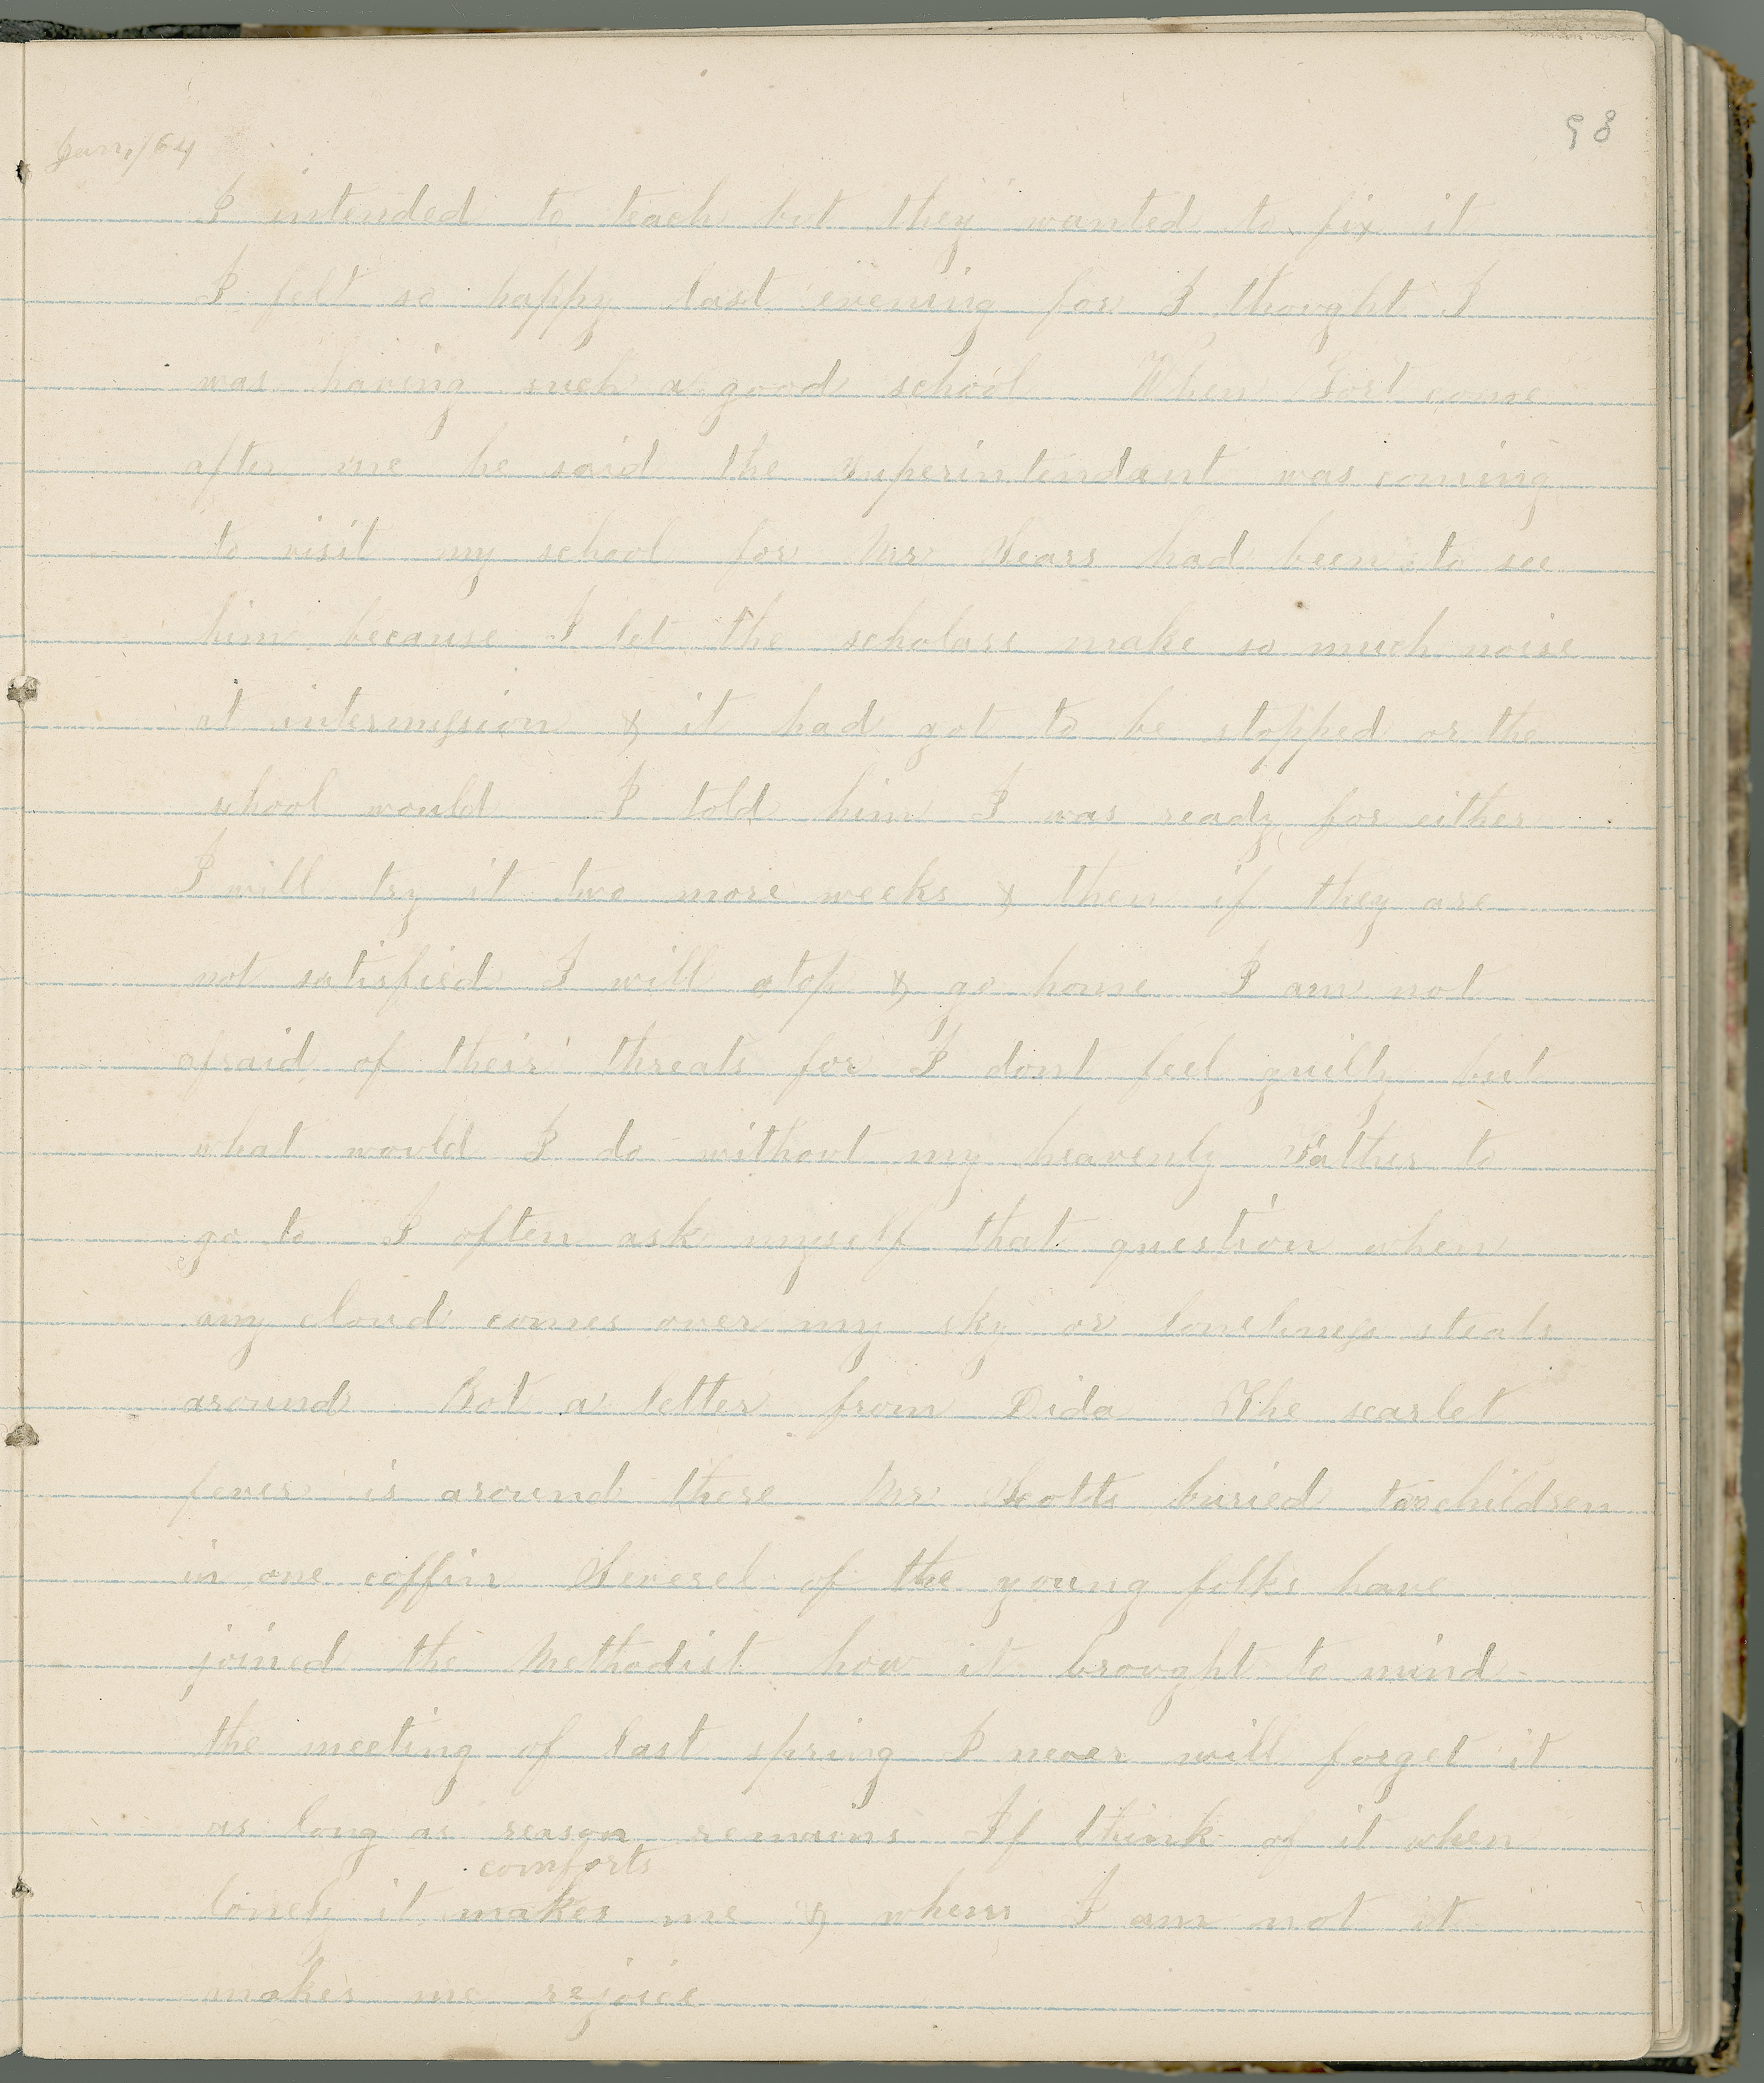 98
Jan, /64
I intended to teach but they wanted to fix it
I felt so happy last evening for I thought I
was having such a good school When Gort come
after me he said the superintendant was coming
to visit my school for Mr Sears had been to see
him because I let the scholars make so much noise
at intermission & it had got to be stopped or the
school would I told him I was ready for either
I will try it two more weeks & then if they are
not satisfied I will stop & go home I am not
afraid of their threats for I dont feel guilty but
what would I do without my heavenly Father to
go to I often ask myself that question when
any cloud comes over my sky or loneliness steals
around Got a letter from Dida The scarlet
fever is around there Mr Scotts buried two children
in one coffin Severel of the young folks have
joined the Methodist how it brought to mind
the meeting of last spring I never will forget it
as long as reason remains If think of it when
comforts
lonely it makes me & when I am not it
makes me rejoice